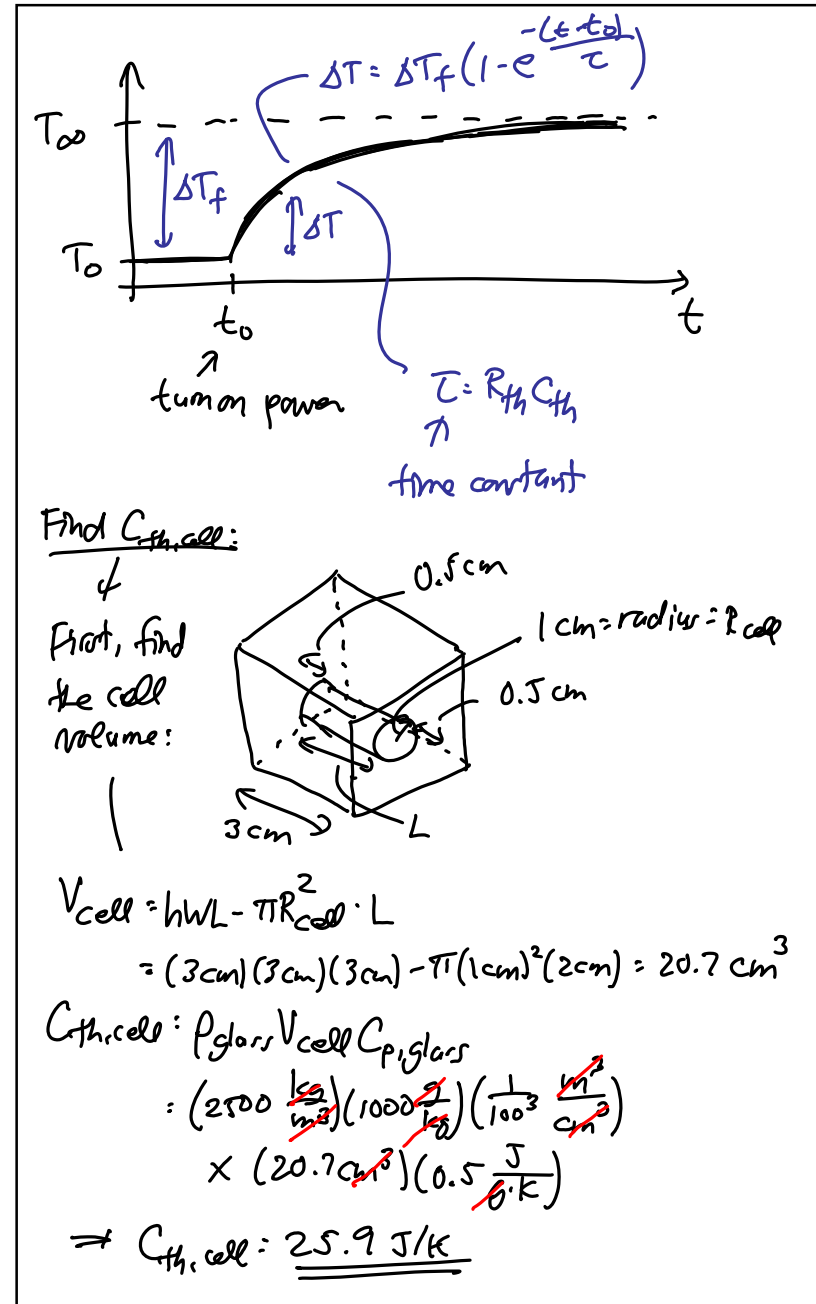 ΔT = ΔT_f (1 - e^{-(t-t_0)/τ})
T_∞
ΔT_f
ΔT
T_0
t_0
t
turn on power
τ = R_th C_th
time constant
Find C_th,cell:
First, find
the cell
volume:
0.5 cm
1 cm = radius = R_cell
0.5 cm
3 cm
L
V_cell = hWL - πR_cell^2 · L
= (3cm)(3cm)(3cm) - π(1cm)^2(2cm) = 20.7 cm^3
C_th,cell = ρ_glass V_cell C_p,glass
= (2500 kg/m^3)(1000 g/kg)(1/100^3 m^3/cm^3)
× (20.7cm^3)(0.5 J/g·K)
⇒ C_th,cell = 25.9 J/K